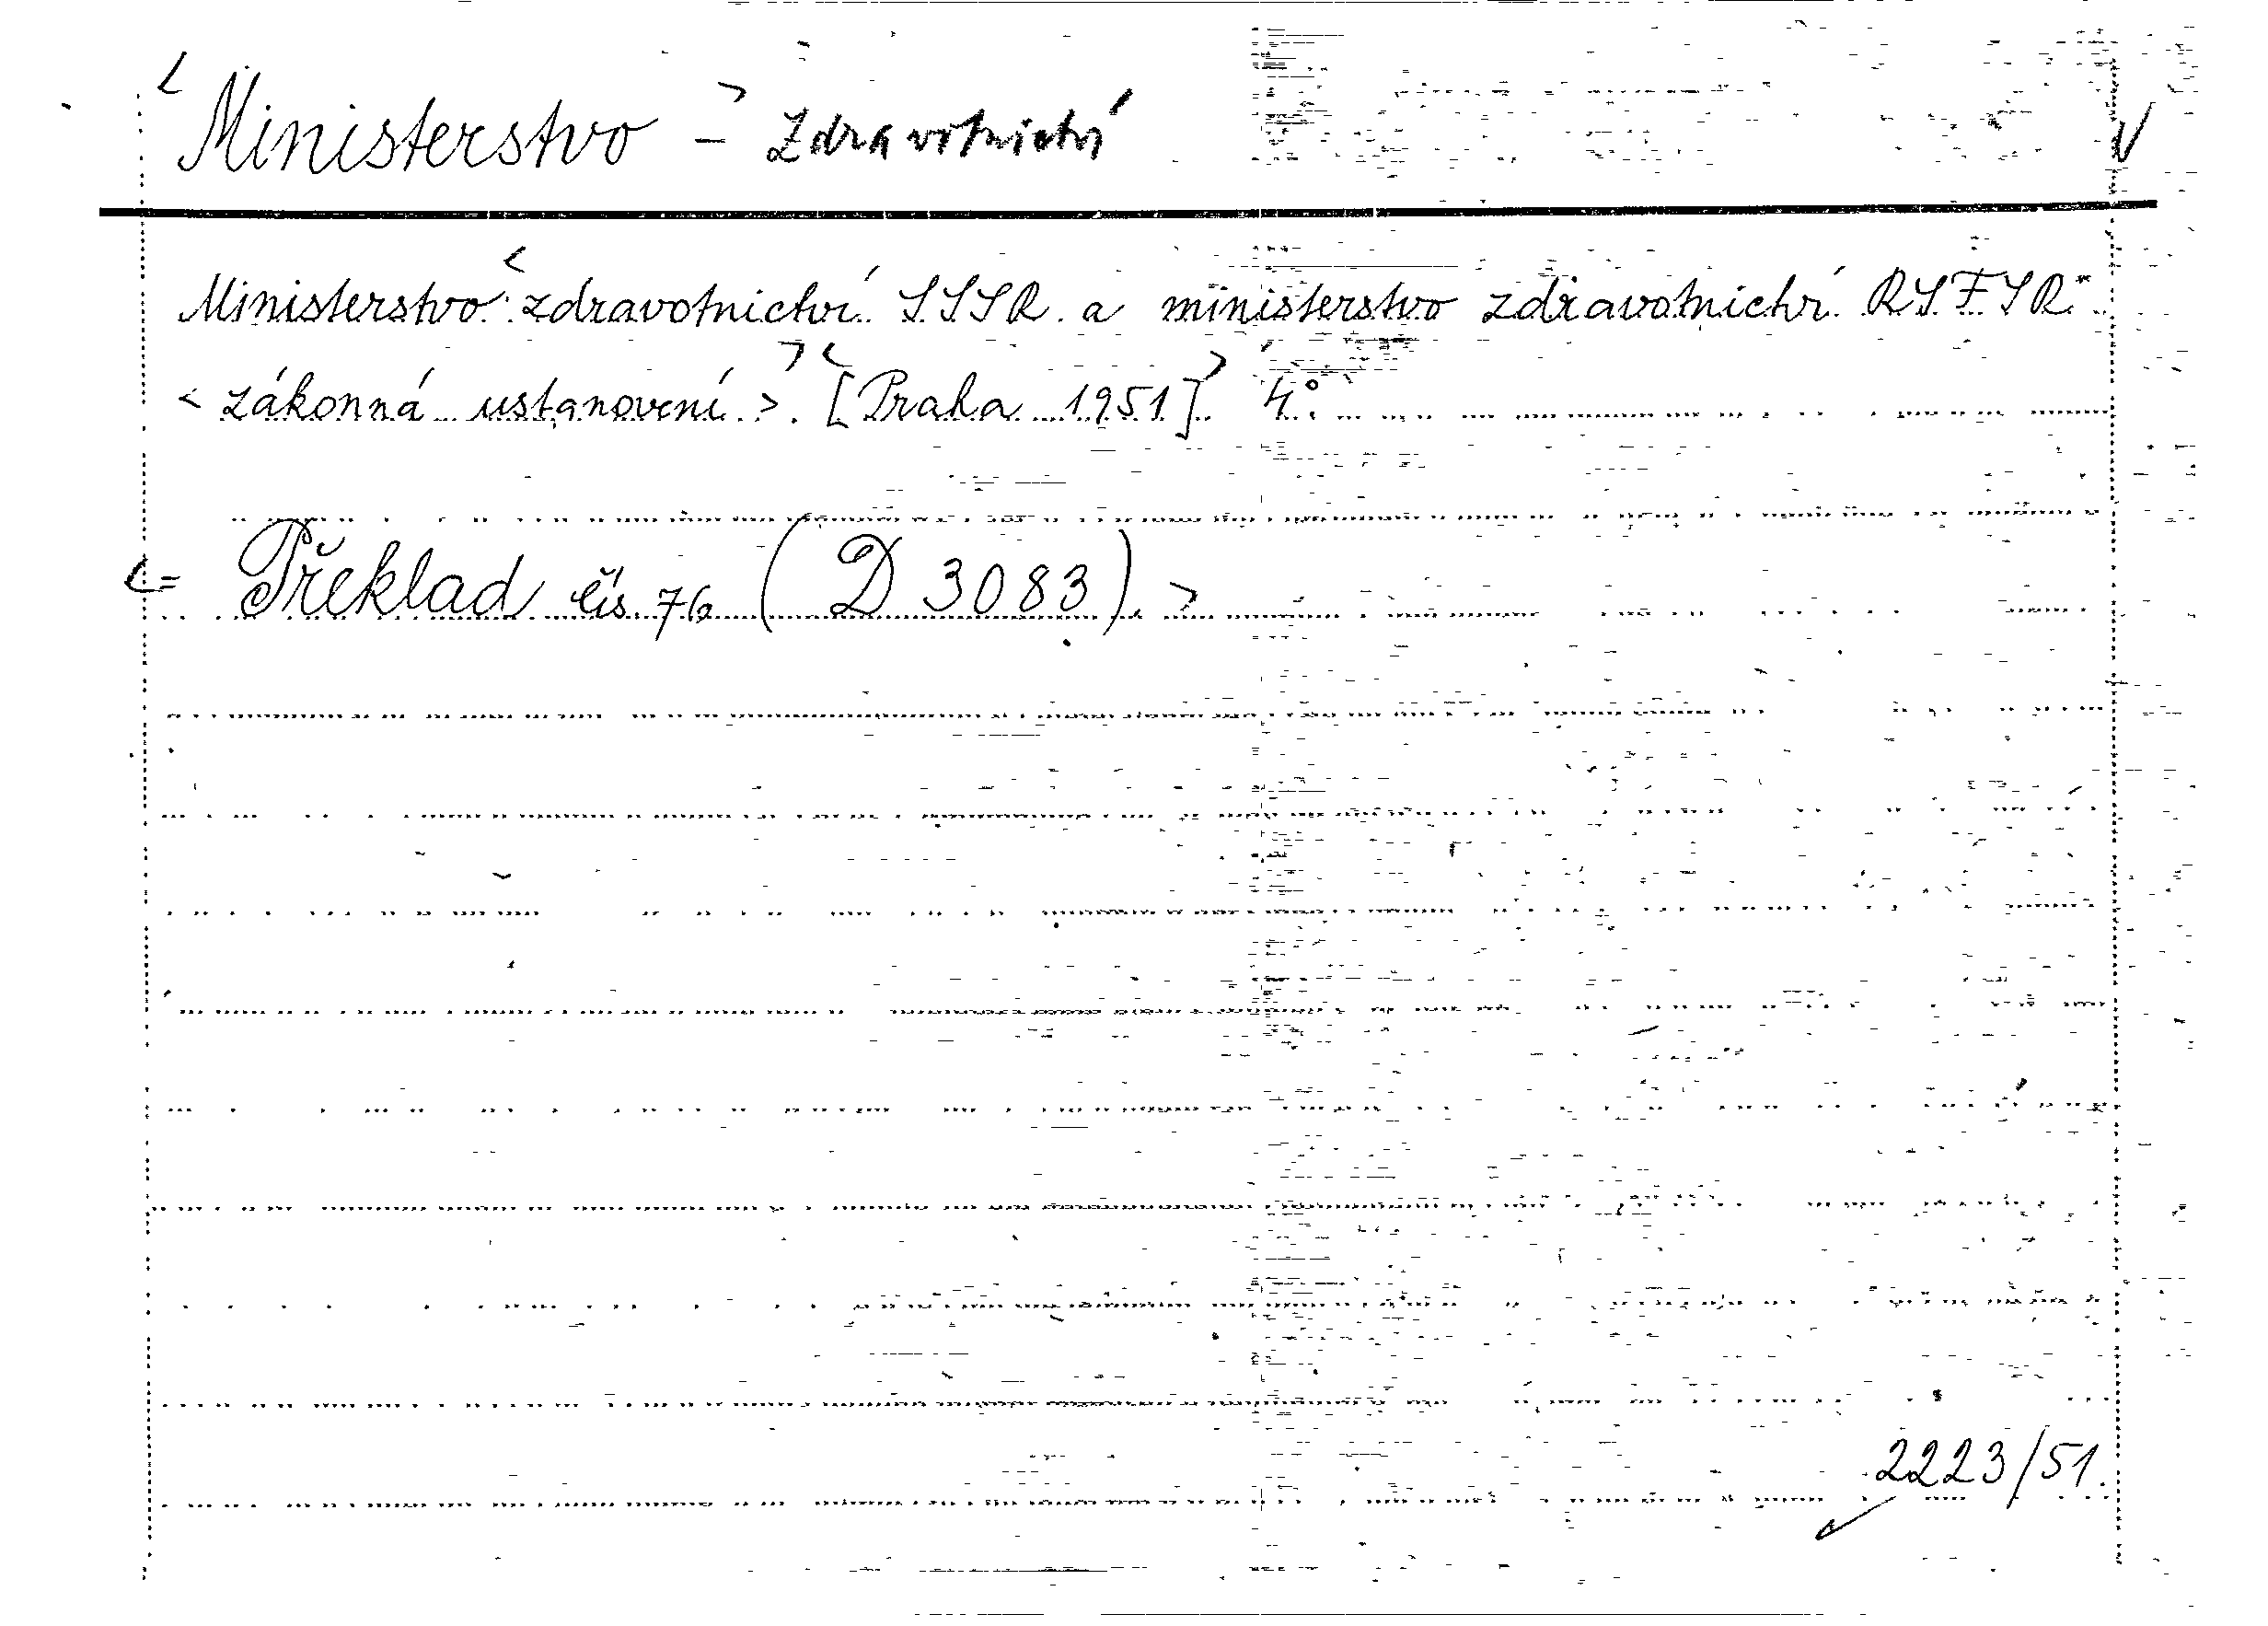 Ministerstvo - Zdravotnictví
Ministerstvo zdravotnictví SSSR a ministerstvo zdravotnictví RSFSR
< zákonná ustanovení >. [Praha 1951] 4°.
= Překlad čís. 76 (D 3083).
2223/51.